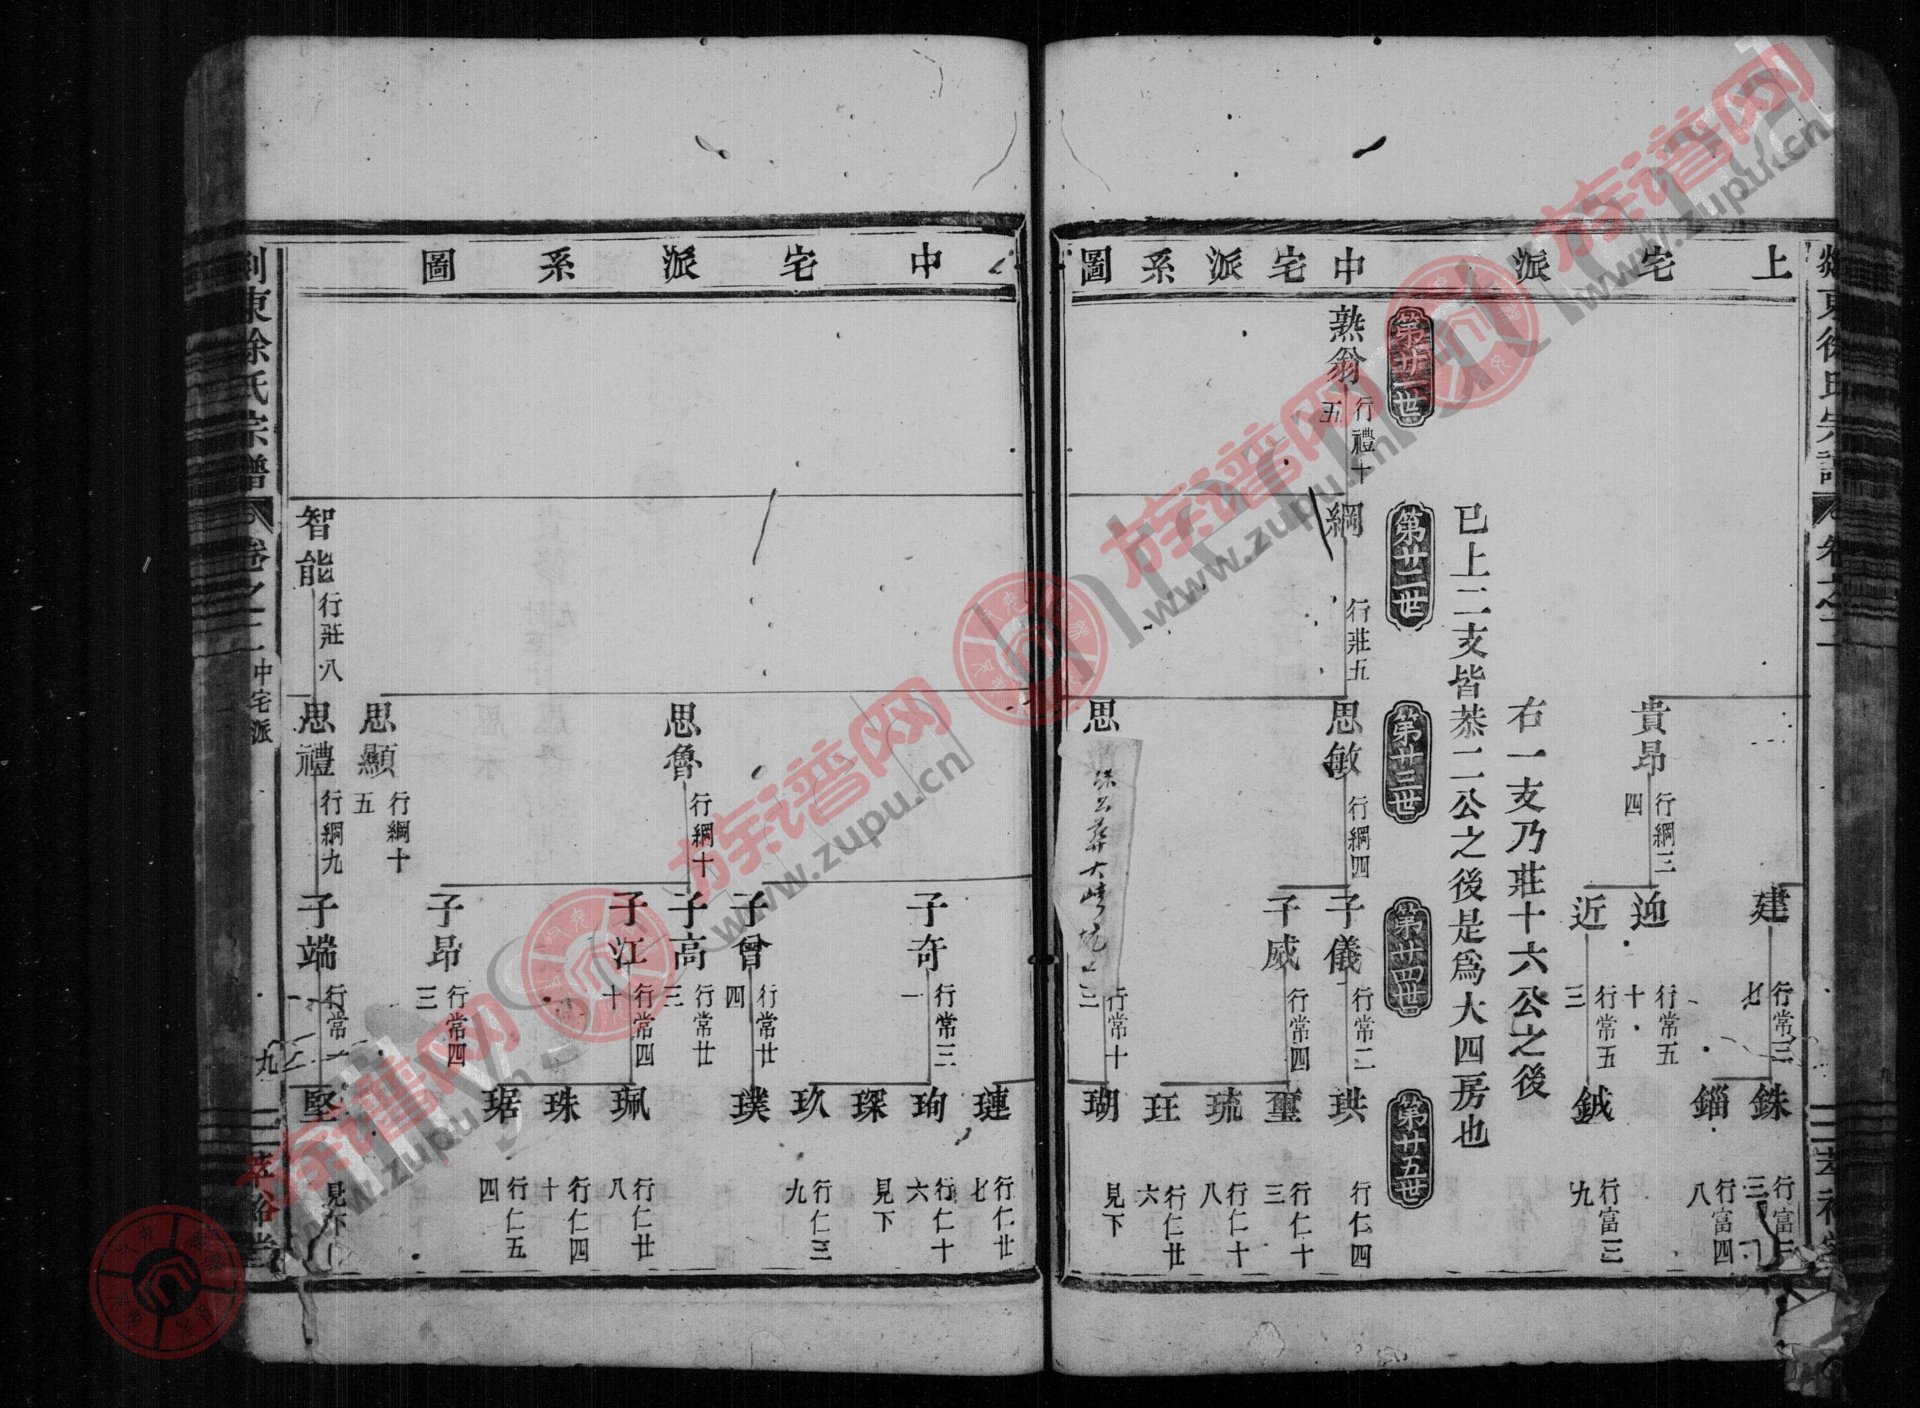 上宅派
中宅派系圖
建
行常三
七
銖
行富三
三
錙
行富四
八
貴昂
行綱三
四
迎
行常五
十
近
行常五
三
鉞
行富三
九
右一支乃莊十六公之後
已上二支皆恭二公之後是爲大四房也
第廿一世
第廿二世
第廿三世
第廿四世
第廿五世
熟翁
行禮十
五
綱
行莊五
思敏
行綱四
子儀
行常二
珙
行仁四
子威
行常四
璽
行仁十
三
琉
行仁十
八
玨
行仁廿
六
思
行常十
三
瑚
見下
中宅派系圖
璉
行仁廿
七
子奇
行常三
一
珣
行仁十
六
琛
見下
玖
行仁三
九
子曾
行常廿
四
璞
思魯
行綱十
子高
行常廿
三
子江
行常四
十
珮
行仁廿
八
珠
行仁四
十
琚
行仁五
四
子昂
行常四
三
思顯
行綱十
五
智能
行莊八
思禮
行綱九
子端
行常一
堅
見下
剡東徐氏宗譜
卷之二
中宅派
九
族谱网
www.zupu.cn